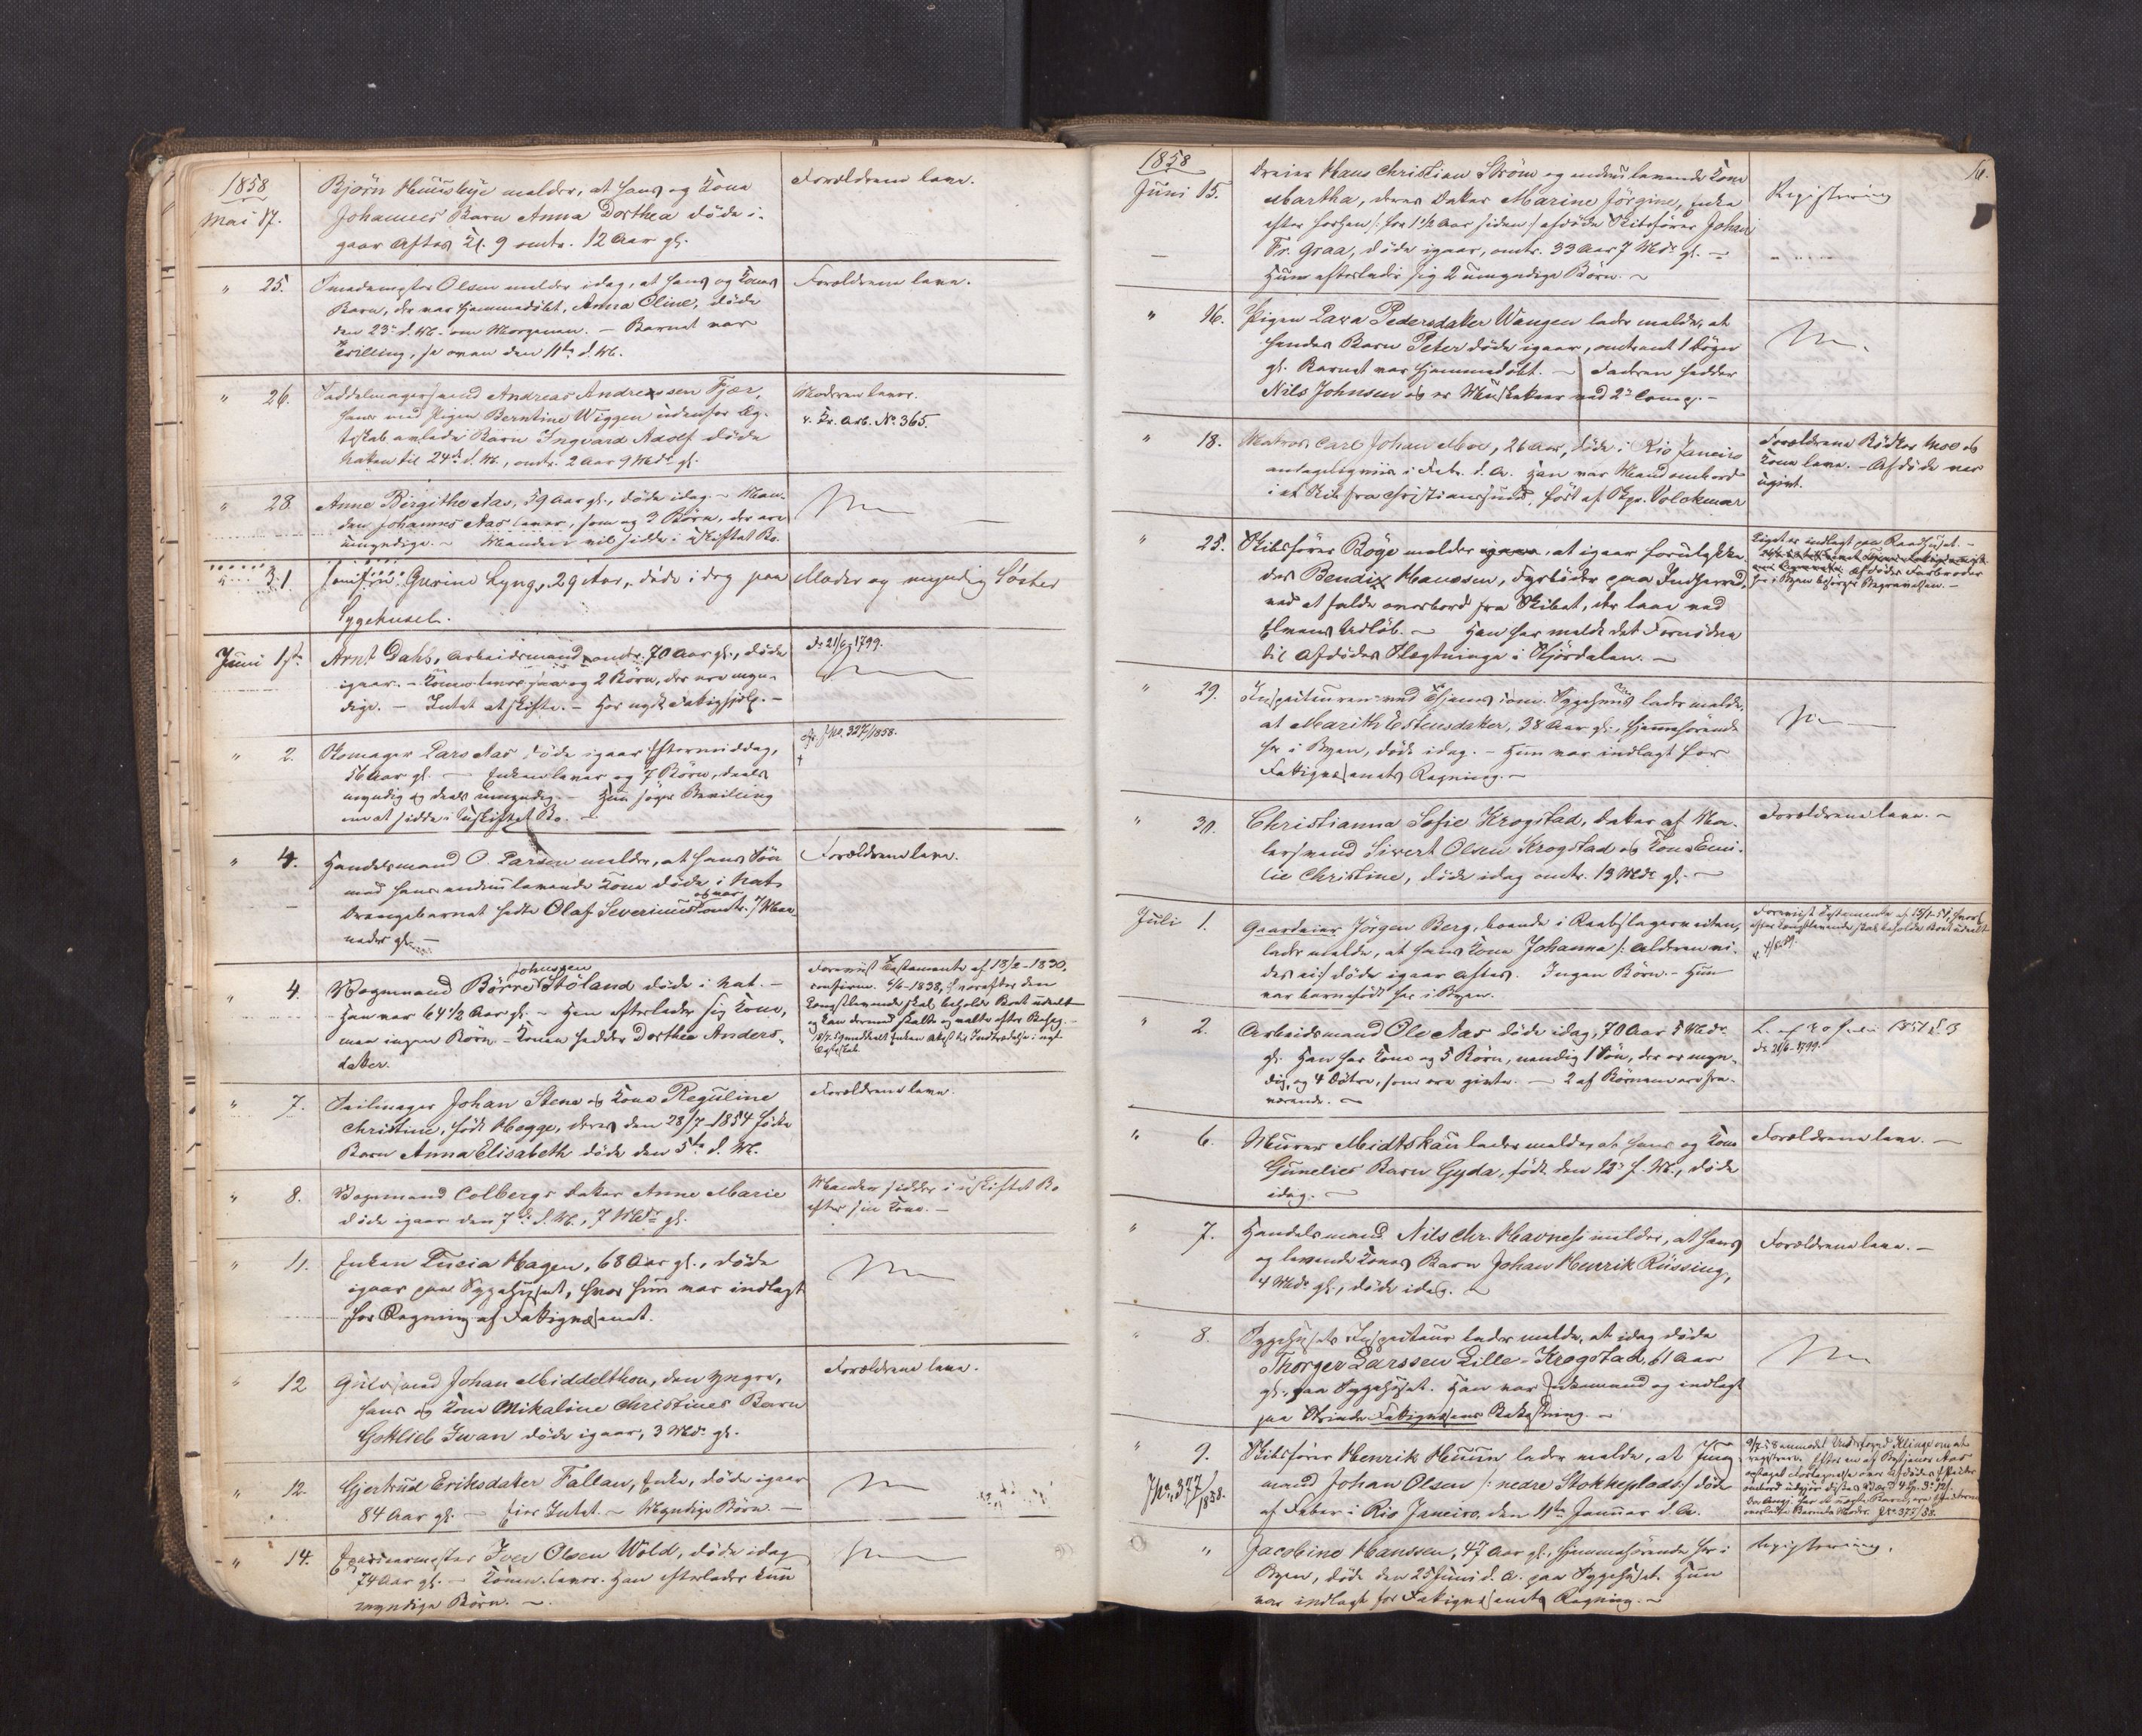 1858
Mai 17.
Bjørn Huusbye melder, at hans og Kone
Johannes Barn Anna Dorthea døde i-
gaar Aftes Kl. 9 omtr. 12 Aar gl.
Forældrene leve.
" 25.
Olsen melder idag, at hans og Kones
Barn, der var hjemmedøbt, Anna Oline, døde
den 23de d. M. om Morgenen. – Barnet var
Trilling, se ovan den 11te d. M.
Forældrene leve.
" 26.
Sadelmagersvend Andreas Andreassen Fjær,
hans med Pigen Berntine Wiggen udenfor Æg-
teskab avlede Barn Ingvard Adolf døde
Natten til 24de d. M., omtr. 2 Aar 9 Mdr gl.
Moderen lever.
v. Fr. Arb. No. 365.
" 28.
Anne Birgithe Aas, 59 Aar gl., døde idag. – Man-
den Johannes Aas lever, som og 3 Børn, der ere
umyndige. – Manden vil sidde i uskiftet Bo.
" 31
Jomfru Gurine Lyng, 29 Aar, døde i dag paa
Sygehuset.
Moder og myndig Søster
Juni 1ste
Arnt Dahl, Arbeidsmand, omtr. 70 Aar gl., døde
igaar. – Konen lever og 2 Børn, der ere myn-
dige. – Intet at skifte. – Har nydt Fattighjelp. –
Fr 21/6 1799.
" 2.
Skomager Lars Aas døde igaar Eftermiddag,
56 Aar gl. – Enken lever og 7 Børn, deels
myndig og deels umyndig. – Hun søger Bevilling
om at sidde i uskiftet Bo. –
cfr. Jno. 327/1858.
†
" 4.
Handelsmand O. Larsen melder, at hans Søn
med hans endnu levende Kone døde i Nat.
Drengebarnet hedte Olaf Severinus og var omtr. 7 Maa-
neder gl. –
Forældrene leve.
" 4.
Vognmand Børre Johnsen Støland døde i Nat. –
Han var 64 1/2 Aar gl. – Han efterlader sig Kone,
men ingen Børn – Konen hedder Dorthea Anders-
datter.
Foreviist Testamente af 18/2-1830,
confirm. 5/6-1838, hvorefter den
Længstlevende skal beholde Boet udeelt
og kan dermed skalte og valte efter Behag. –
" 7.
Seilmager Johan Stene og Kone Reguline
Christine, født Hegge, deres den 28/7-1854 fødte
Barn Anna Elisabeth døde den 5te d. M.
Forældrene leve.
" 8.
Vognmand Colbergs Datter Anne Marie
døde igaar den 7de d. M., 7 Mdr gl.
Manden sidder i uskiftet Bo
efter sin Kone. –
" 11.
Enken Lucia Hagen, 68 Aar gl., døde
igaar paa Sygehuset, hvor hun var indlagt
for Regning af Fattigvæsenet.
" 12
Guldsmed Johan Middelthon, den yngre,
hans og Kone Mikaline Christines Barn
Gottlieb Iwan døde igaar, 3 Mdr gl.
Forældrene leve.
" 12.
Gjertrud Eriksdatter Fallan, Enke, døde igaar
84 Aar gl. – Eier Intet. – Myndige Børn. –
" 14.
Iver Olsen Wold, døde idag
74 Aar gl. – Konen lever. Han efterlader kun
myndige Børn. –
1858
16.
Juni 15.
Dreier Hans Christian Strøm og endnu levende Kone
Martha, deres Datter Marine Jørgine, Enke
efter forhen /: for 1 1/2 Aar siden :/ afdøde Skibsfører Johan
Fr. Graa, døde igaar, omtr. 33 Aar 7 Mdr gl. –
Hun efterlader sig 2 umyndige Børn. –
Registrering
" 16.
Pigen Lava Pedersdatter Wangen lader melde, at
hendes Barn Peter døde igaar, omtrent 1 Døgn
gl. Barnet var hjemmedøbt. – Faderen hedder
Nils Johnsen og er Musketeer ved 2de Comp. –
" 18.
Matros Carl Johan Moe, 26 Aar, døde i Rio Janeiro
i Febr. d. A. Han var Mand ombord
i et Skib fra Christianssund, ført af Kpt. Volckmar
Forældrene Bødker Moe og
Kone leve. – Afdøde var
ugivt.
" 25.
Skibsfører Bøge melder, at igaar forulykke-
des Bendix Hanssen, Fyrbøder paa Indherred,
ved at falde overbord fra Skibet, der laae ved
Elvens Udløb. – Han har meldt det Fornødne
til Afdødes Slægtninge i Stjørdalen. –
Liget er indlagt paa Raadhuset. –
Afdødes Farbroder
her i Byen besørger Begravelsen. –
" 29.
Inspecteuren ved Thjems com. Sygehuus lader melde,
at Marith Estensdatter, 38 Aar gl., hjemmehørende
her i Byen, døde idag. – Hun var indlagt for
Fattigvæsenets Regning. –
" 30.
Christianna Sofie Krogstad, Datter af Ma-
lersvend Sivert Olsen Krogstad og Kone Emi-
lie Christine, døde idag omtr. 13 Mdr gl. –
Forældrene leve. –
Juli 1.
Gaardeier Jørgen Berg, boende i Reebslagerveiten,
lader melde, at hans Kone Johanna /: Alderen vi-
des ei :/ døde igaar Aftes. Ingen Børn. – Hun
var barnefødt her i Byen.
Foreviist Testamente af 15/1-51, hvorf.
efter Længstlevende skal beholde Boet udeelt
" 2.
Arbeidsmand Ole Aas døde idag, 70 Aar 5 Mdr
gl. Han har Kone og 5 Børn, nemlig 1 Søn, der er myn-
dig, og 4 Døtre, som ere givte. – 2 af Børnene ere fra-
værende. –
Fr. 21/6-1799.
" 6.
Murer Midtskau lader melde, at hans og Kone
Gunelies Barn Gyda, født den 12te f. M., døde
idag. –
Forældrene leve. –
" 7.
Handelsmand Nils Chr. Havnes melder, at hans
og levende Kones Barn Johan Henrik Rüssing,
4 Mdr gl., døde idag. –
Forældrene leve. –
" 8.
Sygehusets Inspecteur lader melde, at idag døde
Thorger Larssen Lille-Krogstad, 61 Aar
gl., paa Sygehuset. Han var Enkemand og indlagt
paa Strinde Fattigvæsens Bekostning. –
" 9.
Jno. 327/1858.
Skibsfører Henrik Huun lader melde, at Jung-
mand Johan Olsen /: nedre Stokkeplads :/ døde
af Feber i Rio Janeiro den 11te Januar d. A.
"
Jacobine Hanssen, 47 Aar gl., hjemmehørende her i
Byen, døde den 25 Juni d. A. paa Sygehuset. Hun
var indlagt for Fattigvæsenets Regning. –
Registrering.